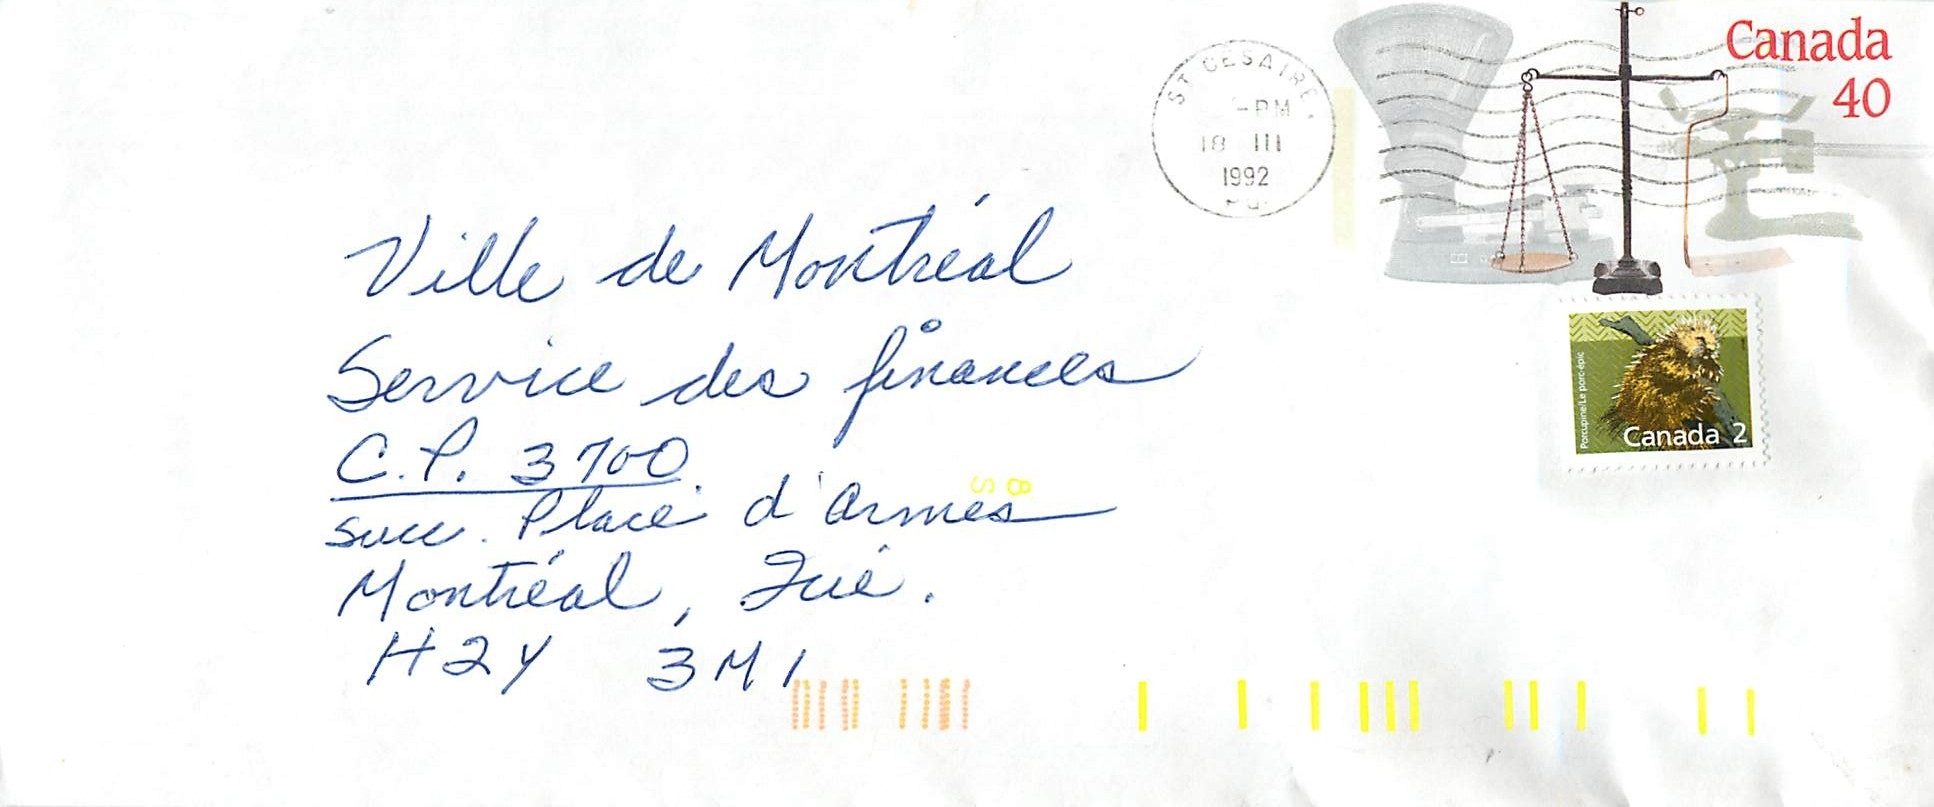 Canada
40
ST CESAIRE
-PM
18 III
1992
P.Q.
Porcupine/Le porc-épic
Canada 2
Ville de Montréal
Service des finances
C.P. 3700
succ. Place d'armes
Montréal, Qué.
H2Y 3M1
8
S